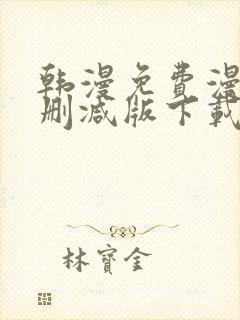 韩漫免费漫
删减版下载
林寶金